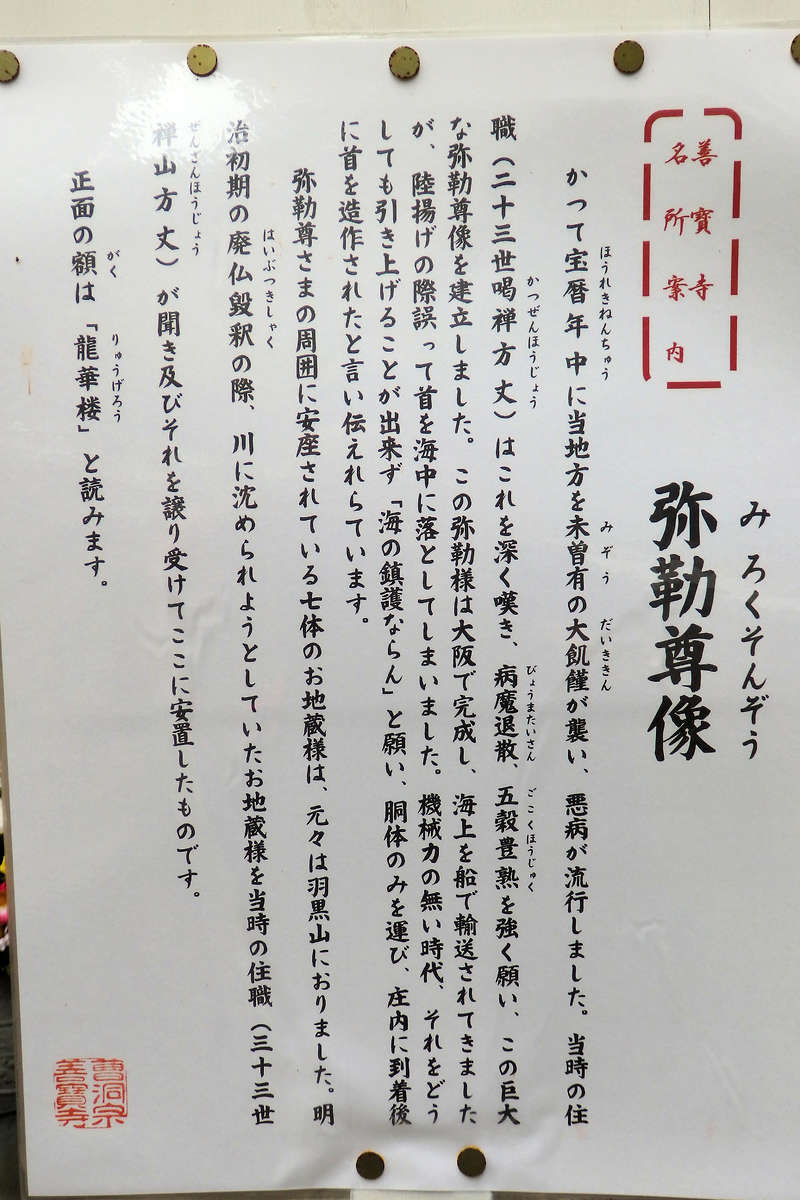 善寳寺
名所案内
みろくそんぞう
弥勒尊像
ほうれきねんちゅう
みぞう
だいききん
かつて宝暦年中に当地方を未曽有の大飢饉が襲い、悪病が流行しました。当時の住
かつぜんほうじょう
びょうまたいさん
ごこくほうじゅく
職（二十三世喝禅方丈）はこれを深く嘆き、病魔退散、五穀豊熟を強く願い、この巨大
な弥勒尊像を建立しました。この弥勒様は大阪で完成し、海上を船で輸送されてきました
が、陸揚げの際誤って首を海中に落としてしまいました。機械力の無い時代、それをどう
しても引き上げることが出来ず「海の鎮護ならん」と願い、胴体のみを運び、庄内に到着後
に首を造作されたと言い伝えれらています。
弥勒尊さまの周囲に安座されている七体のお地蔵様は、元々は羽黒山におりました。明
はいぶつきしゃく
治初期の廃仏毀釈の際、川に沈められようとしていたお地蔵様を当時の住職（三十三世
ぜんざんほうじょう
禅山方丈）が聞き及びそれを譲り受けてここに安置したものです。
がく
りゅうげろう
正面の額は「龍華楼」と読みます。
曹洞宗
善寳寺